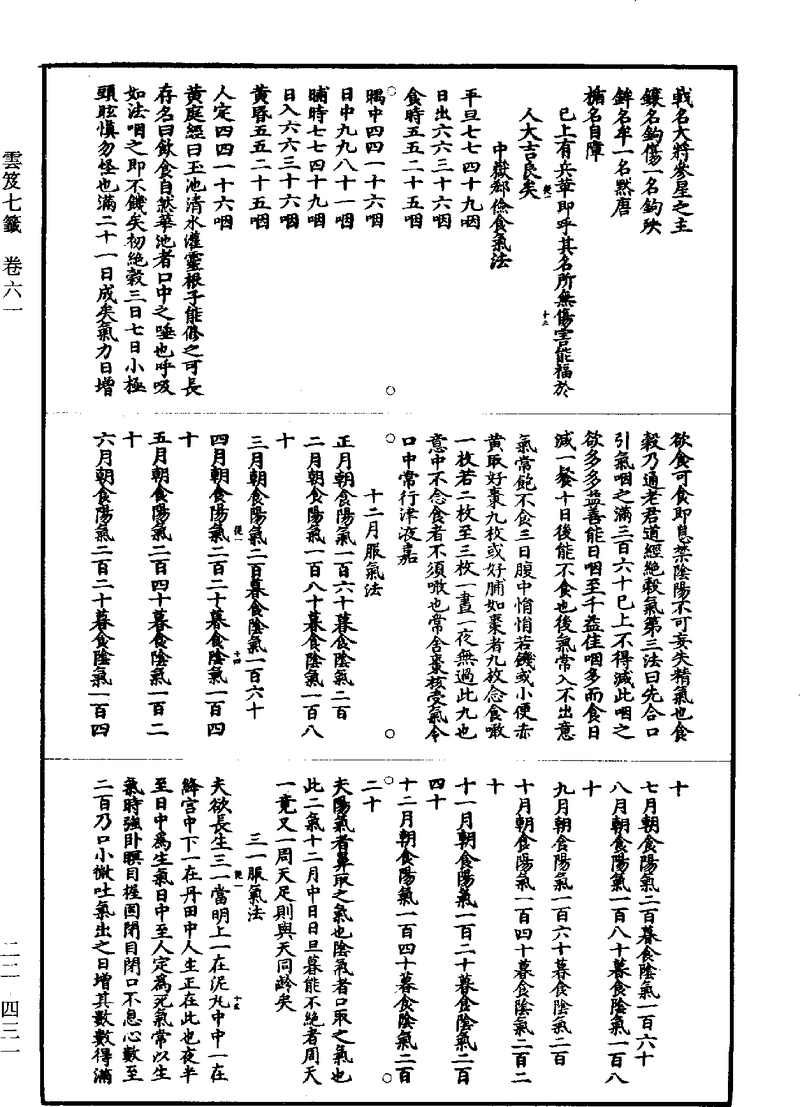 雲笈七籤　卷六一
二二　四三一
戟名大將參星之主
鑲名鉤傷一名鉤殃
鉾名牟一名默唐
楯名自障
已上有兵革即呼其名所無傷害能福於
人大吉良矣
中嶽郄儉食氣法
平旦七七四十九咽
日出六六三十六咽
食時五五二十五咽
隅中四四一十六咽
日中九九八十一咽
晡時七七四十九咽
日入六六三十六咽
黃昏五五二十五咽
人定四四一十六咽
黃庭經曰玉池清水灌靈根子能修之可長
存名曰飲食自然華池者口中之唾也呼吸
如法咽之即不饑矣初絕穀三日七日小極
頭眩慎勿怪也滿二十一日成矣氣力日增
欲食可食即息禁陰陽不可妄失精氣也食
穀乃通老君道經絕穀氣第三法曰先合口
引氣咽之滿三百六十已上不得減此咽之
欲多多益善能日咽至千益佳咽多而食日
減一餐十日後能不食也後氣常入不出意
氣常飽不食三日腹中悁悁若饑或小便赤
黃取好棗九枚或好脯如棗者九枚念食噉
一枚若二枚至三枚一晝一夜無過此九也
意中不念食者不須噉也常含棗核受氣令
口中常行津液嘉
十二月服氣法
正月朝食陽氣一百六十暮食陰氣二百
二月朝食陽氣一百八十暮食陰氣一百八
十
三月朝食陽氣二百暮食陰氣一百六十
四月朝食陽氣二百二十暮食陰氣一百四
十
五月朝食陽氣二百四十暮食陰氣一百二
十
六月朝食陽氣二百二十暮食陰氣一百四
十
七月朝食陽氣二百暮食陰氣一百六十
八月朝食陽氣一百八十暮食陰氣一百八
十
九月朝食陽氣一百六十暮食陰氣二百
十月朝食陽氣一百四十暮食陰氣二百二
十
十一月朝食陽氣一百二十暮食陰氣二百
四十
十二月朝食陽氣一百四十暮食陰氣二百
二十
夫陽氣者鼻取之氣也陰氣者口取之氣也
此二氣十二月中日日旦暮能不絕者周天
一竟又一周天足則與天同齡矣
三一服氣法
夫欲長生三一當明上一在泥丸中中一在
絳宮中下一在丹田中人生正在此也夜半
至日中為生氣日中至人定為死氣常以生
氣時強卧瞑目握固閉目閉口不息心數至
二百乃口小微吐氣出之日增其數數得滿